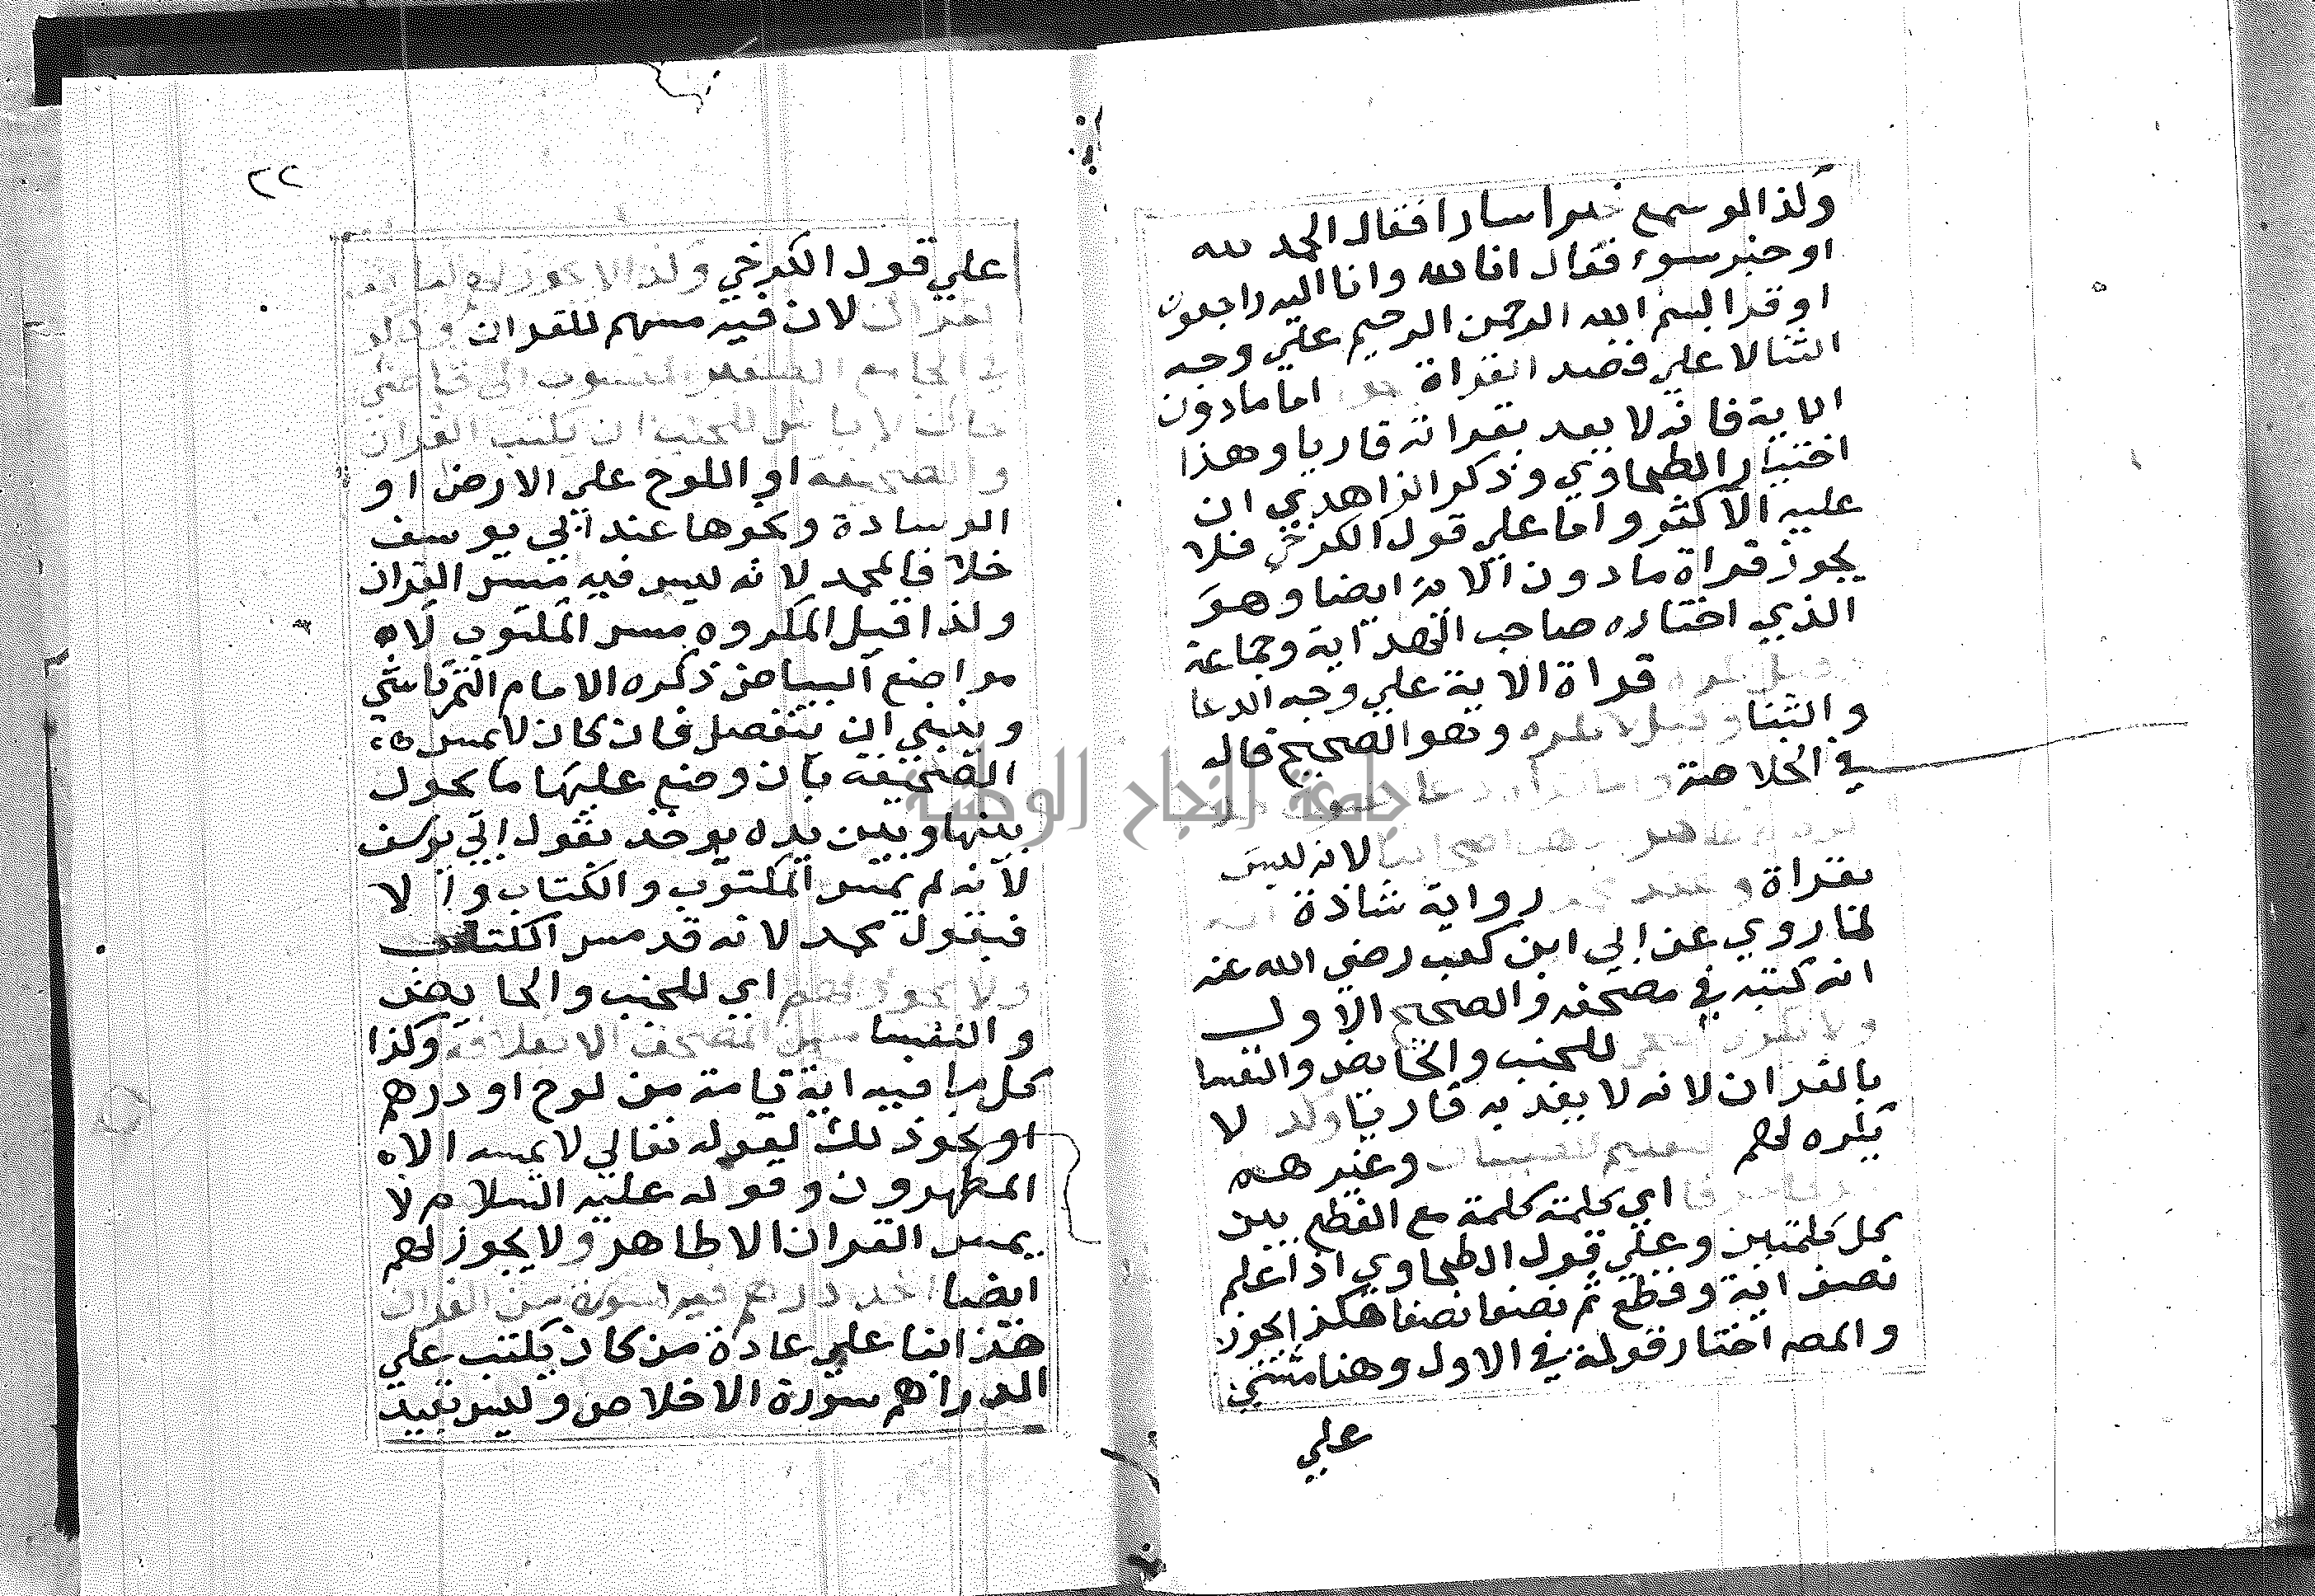 ولذا لو سمع خبرا سارا فقال الحمد لله
او خبر سوء فقال انا لله وانا اليه راجعون
او قرا بسم الله الرحمن الرحيم علي وجه
الثنا لا علي قصد القراة اما مادون
الاية فانه لا يعد بقراته قاريا وهذا
اختيار الطحاوي وذكر الزاهدي ان
عليه الاكثر واما علي قول الكرخي فلا
يجوز قراة مادون الاية ايضا وهو
الذي اختاره صاحب الهداية وجماعة
قراة الاية علي وجه الدعا
والثنا وقيل لا تكره وهو الصحيح قال
في الخلاصة
لانه ليس
بقراة وعند محمد رواية شاذة
لما روي عن ابي ابن كعب رضي الله عنه
انه كتبه في مصحفه والصحيح الاول
ولا تكره للجنب والحايض والنفسا
بالقران لانه لا يعد به قاريا وكذا لا
يكره لهم تعليم للصبيان وغيرهم
حرفا اي كلمة كلمة مع القطع بين
كل كلمتين وعلي قول الطحاوي اذا علم
نصف اية وقطع ثم نصفا نصفا هكذا يجوز
والمصه اختار قوله في الاول وهنا مشي
علي
٢٢
علي قول الكرخي وكذا لا يجوز لهم
القران لان فيه مسهم للقران وذكر
في الجامع الصغير المنسوب الي قاضي
خان لا باس للجنب ان يكتب القران
والصحيفة او اللوح علي الارض او
الوسادة ونحوها عند ابي يوسف
خلافا لمحمد لانه ليس فيه مس القران
ولذا قيل المكروه مس المكتوب لا
مواضع البياض ذكره الامام التمرتاشي
وينبغي ان يفصل فان كان لا يمس
الصحيفة بان وضع عليها ما يحول
بينها وبين يده يوخذ بقول ابي يوسف
لانه لم يمس المكتوب والكتاب والا
فبقول محمد لانه قد مس الكتاب
ولا يجوز لهم اي للجنب والحايض
والنفسا مس المصحف الا بغلافه وكذا
كل ما فيه اية تامة من لوح او درهم
او نحو ذلك لقوله تعالي لا يمسه الا
المطهرون وقوله عليه السلام لا
يمس القران الا طاهر ولا يجوز لهم
ايضا اخذ درهم فيه سورة من القران
هذا بنا علي عادة من كان يكتب علي
الدراهم سورة الاخلاص وليس بقيد
جامعة النجاح الوطنية